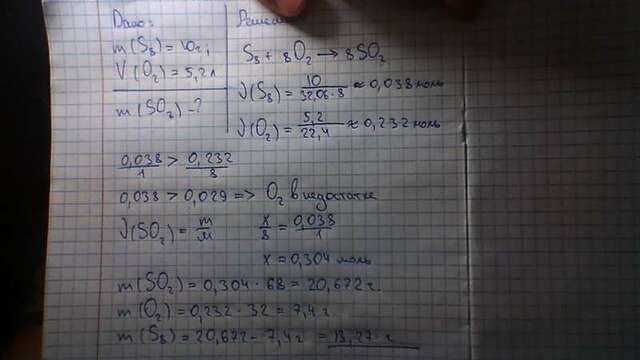 Дано:
m(S₈) = 10г;
V(O₂) = 5,2л
m(SO₂) - ?
Решение
S₈ + 8O₂ → 8SO₂
ν(S₈) = 10/32,06·8 ≈ 0,038 моль
ν(O₂) = 5,2/22,4 ≈ 0,232 моль
0,038/1 > 0,232/8
0,038 > 0,029 => O₂ в недостатке
ν(SO₂) = m/M x/8 = 0,038/1
x = 0,304 моль
m(SO₂) = 0,304 · 68 = 20,672 г.
m(O₂) = 0,232 · 32 = 7,4 г.
m(S₈) = 20,672 - 7,4 г = 13,27 г